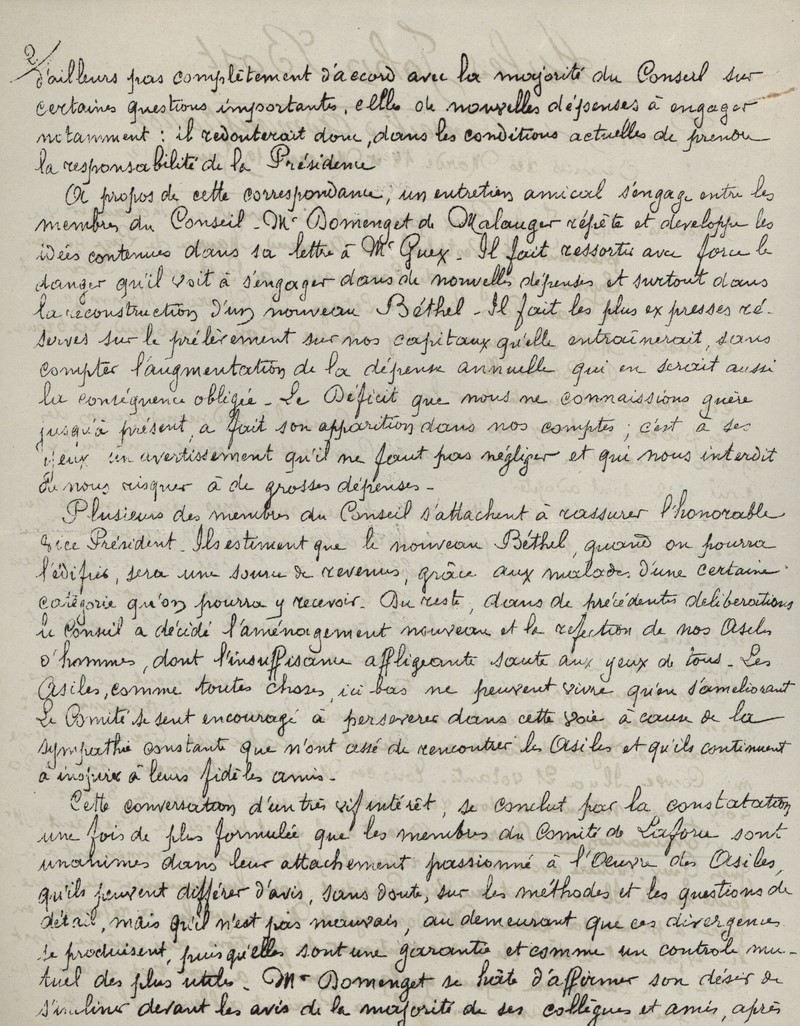 2/
d'ailleurs pas complètement d'accord avec la majorité du Conseil sur
certaines questions importantes, celles de nouvelles dépenses à engager
notamment : il redouterait donc, dans les conditions actuelles de prendre
la responsabilité de la Présidence
A propos de cette correspondance, un entretien amical s'engage entre les
membres du Conseil - Mr Domenget de Malauger répète et développe les
idées contenues dans sa lettre à Mr Guex - Il fait ressortir avec force le
danger qu'il voit à s'engager dans de nouvelles dépenses et surtout dans
la reconstruction d'un nouveau Béthel - Il fait les plus expresses ré-
serves sur le prélèvement sur nos capitaux qu'elle entraînerait, sans
compter l'augmentation de la dépense annuelle qui en serait aussi
la conséquence obligée - Le Déficit que nous ne connaissions guère
jusqu'à présent, a fait son apparition dans nos comptes ; c'est à ses
yeux un avertissement qu'il ne faut pas négliger et qui nous interdit
de nous risquer à de grosses dépenses -
Plusieurs des membres du Conseil s'attachent à rassurer l'honorable
Vice Président - Ils estiment que le nouveau Béthel, quand on pourra
l'édifier, sera une source de revenus, grâce aux malades d'une certaine
catégorie qu'on pourra y recevoir. Du reste, dans de précédentes délibérations
le Conseil a décidé l'aménagement nouveau et la réfection de nos Asiles
d'hommes, dont l'insuffisance affligeante saute aux yeux de tous - Les
Asiles, comme toutes choses, ici bas ne peuvent vivre qu'en s'améliorant
Le Comité se sent encouragé à persévérer dans cette voie à cause de la
sympathie constante que n'ont cessé de rencontrer les Asiles et qu'ils continuent
à inspirer à leurs fidèles amis -
Cette conversation d'un très vif intérêt, se conclut par la constatation
une fois de plus formulée que les membres du Comité de Laforce sont
unanimes dans leur attachement passionné à l'Oeuvre des Asiles,
qu'ils peuvent différer d'avis, sans doute, sur les méthodes et les questions de
détail, mais qu'il n'est pas mauvais, au demeurant que ces divergences
se produisent, puisqu'elles sont une garantie et comme un controle mu-
tuel des plus utiles - Mr Domenget se hâte d'affirmer son désir de
s'incliner devant les avis de la majorité de ses collègues et amis, après